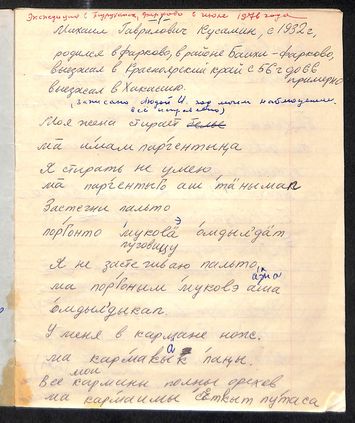 Экспедиция в Туруханск, Фарково в июле 1976 года
Михаил Гаврилович Кусамин, с 1932 г,
родился в Фарково, в районе Баихи-Фарково,
выезжал в Красноярский край с 56 г до 66
примерно
выезжал в Хакасию.
(записано Людой И. под моим наблюдением.
все исправлено)
Моя жена стирает белье
ма̄ имам парӷентиӈа
Я стирать не умею
ма̄ парӷентыго аш та̄нымап
Застегни пальто
порӷонто муковэ омдылдӓт
пуговицу
Я не застегиваю пальто
ма порӷоним муковэ аша
омдылдыкап.
У меня в кармане нож.
ма карманкык паӈы.
мои
Все карманы полны орехов
ма карманмы се̄ткыт путаса